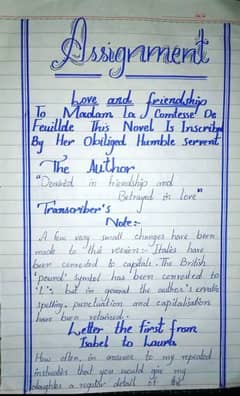 Assignment
Love and friendship
To Madam La Comtesse De
Feuillde This Novel Is Inscribed
By Her Obiliged Humble Servent
The Author
"Decived in friendship and
Betrayed in love"
Transcriber's
Note:-
A few very small changes have been
made to this version:- Italics have
been converted to capitals. The British
'pound' symbol has been converted to
'L': but in general the author's erratic
spelling, punctuation and capitalisation
have been retained.
Letter the first from
Isabel to Laura
How often, in answer to my repeated
that you would give my
daughter a regular detail of the